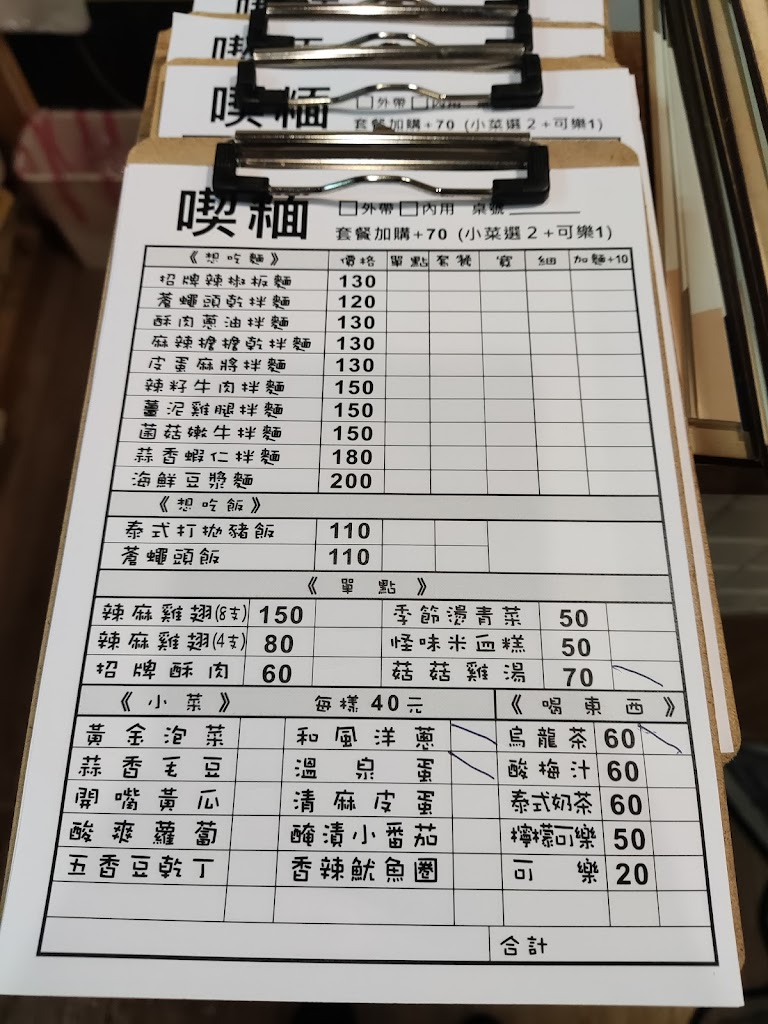 喫麵
□外帶 □內用 桌號
套餐加購+70 (小菜選2+可樂1)
喫緬 □外帶 □內用 桌號
套餐加購+70 (小菜選2+可樂1)
《想吃麵》 價格 單點 套餐 寬 細 加麵+10
招牌辣椒板麵 130
蒼蠅頭乾拌麵 120
酥肉蔥油拌麵 130
麻辣擔擔乾拌麵 130
皮蛋麻將拌麵 130
辣籽牛肉拌麵 150
薑泥雞腿拌麵 150
菌菇嫩牛拌麵 150
蒜香蝦仁拌麵 180
海鮮豆漿麵 200
《想吃飯》
泰式打拋豬飯 110
蒼蠅頭飯 110
《單點》
辣麻雞翅(8支) 150 季節燙青菜 50
辣麻雞翅(4支) 80 怪味米血糕 50
招牌酥肉 60 菇菇雞湯 70
《小菜》 每樣40元 《喝東西》
黃金泡菜 和風洋蔥 烏龍茶 60
蒜香毛豆 溫泉蛋 酸梅汁 60
開嘴黃瓜 清麻皮蛋 泰式奶茶 60
酸爽蘿蔔 醃漬小番茄 檸檬可樂 50
五香豆乾丁 香辣魷魚圈 可樂 20
合計